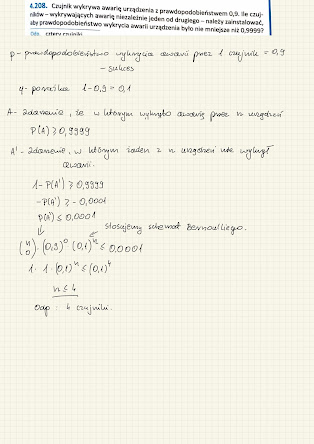 4.208. Czujnik wykrywa awarię urządzenia z prawdopodobieństwem 0,9. Ile czuj-
ników – wykrywających awarię niezależnie jeden od drugiego – należy zainstalować,
aby prawdopodobieństwo wykrycia awarii urządzenia było nie mniejsze niż 0,9999?
Odp. cztery czujniki
p - prawdopodobieństwo wykrycia awarii przez 1 czujnik = 0,9
- sukces
q - porażka 1-0,9 = 0,1
A - zdarzenie, że w którym wykryto awarię przez n urządzeń
P(A) ≥ 0,9999
A' - zdarzenie, w którym żaden z n urządzeń nie wykrył
awarii.
1 - P(A') ≥ 0,9999
-P(A') ≥ -0,0001
P(A') ≤ 0,0001
⇓ ↙ stosujemy schemat Bernoulliego.
(n 0) · (0,9)⁰ (0,1)ⁿ ≤ 0,0001
1 · 1 · (0,1)ⁿ ≤ (0,1)⁴
n ≤ 4
Odp : 4 czujniki.